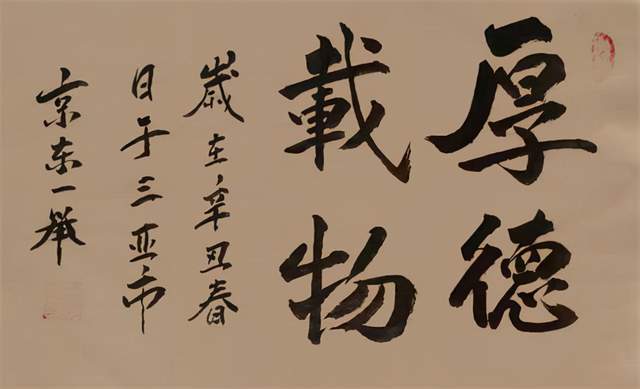 厚德
載物
歲在辛丑春
日于三亚市
京东一